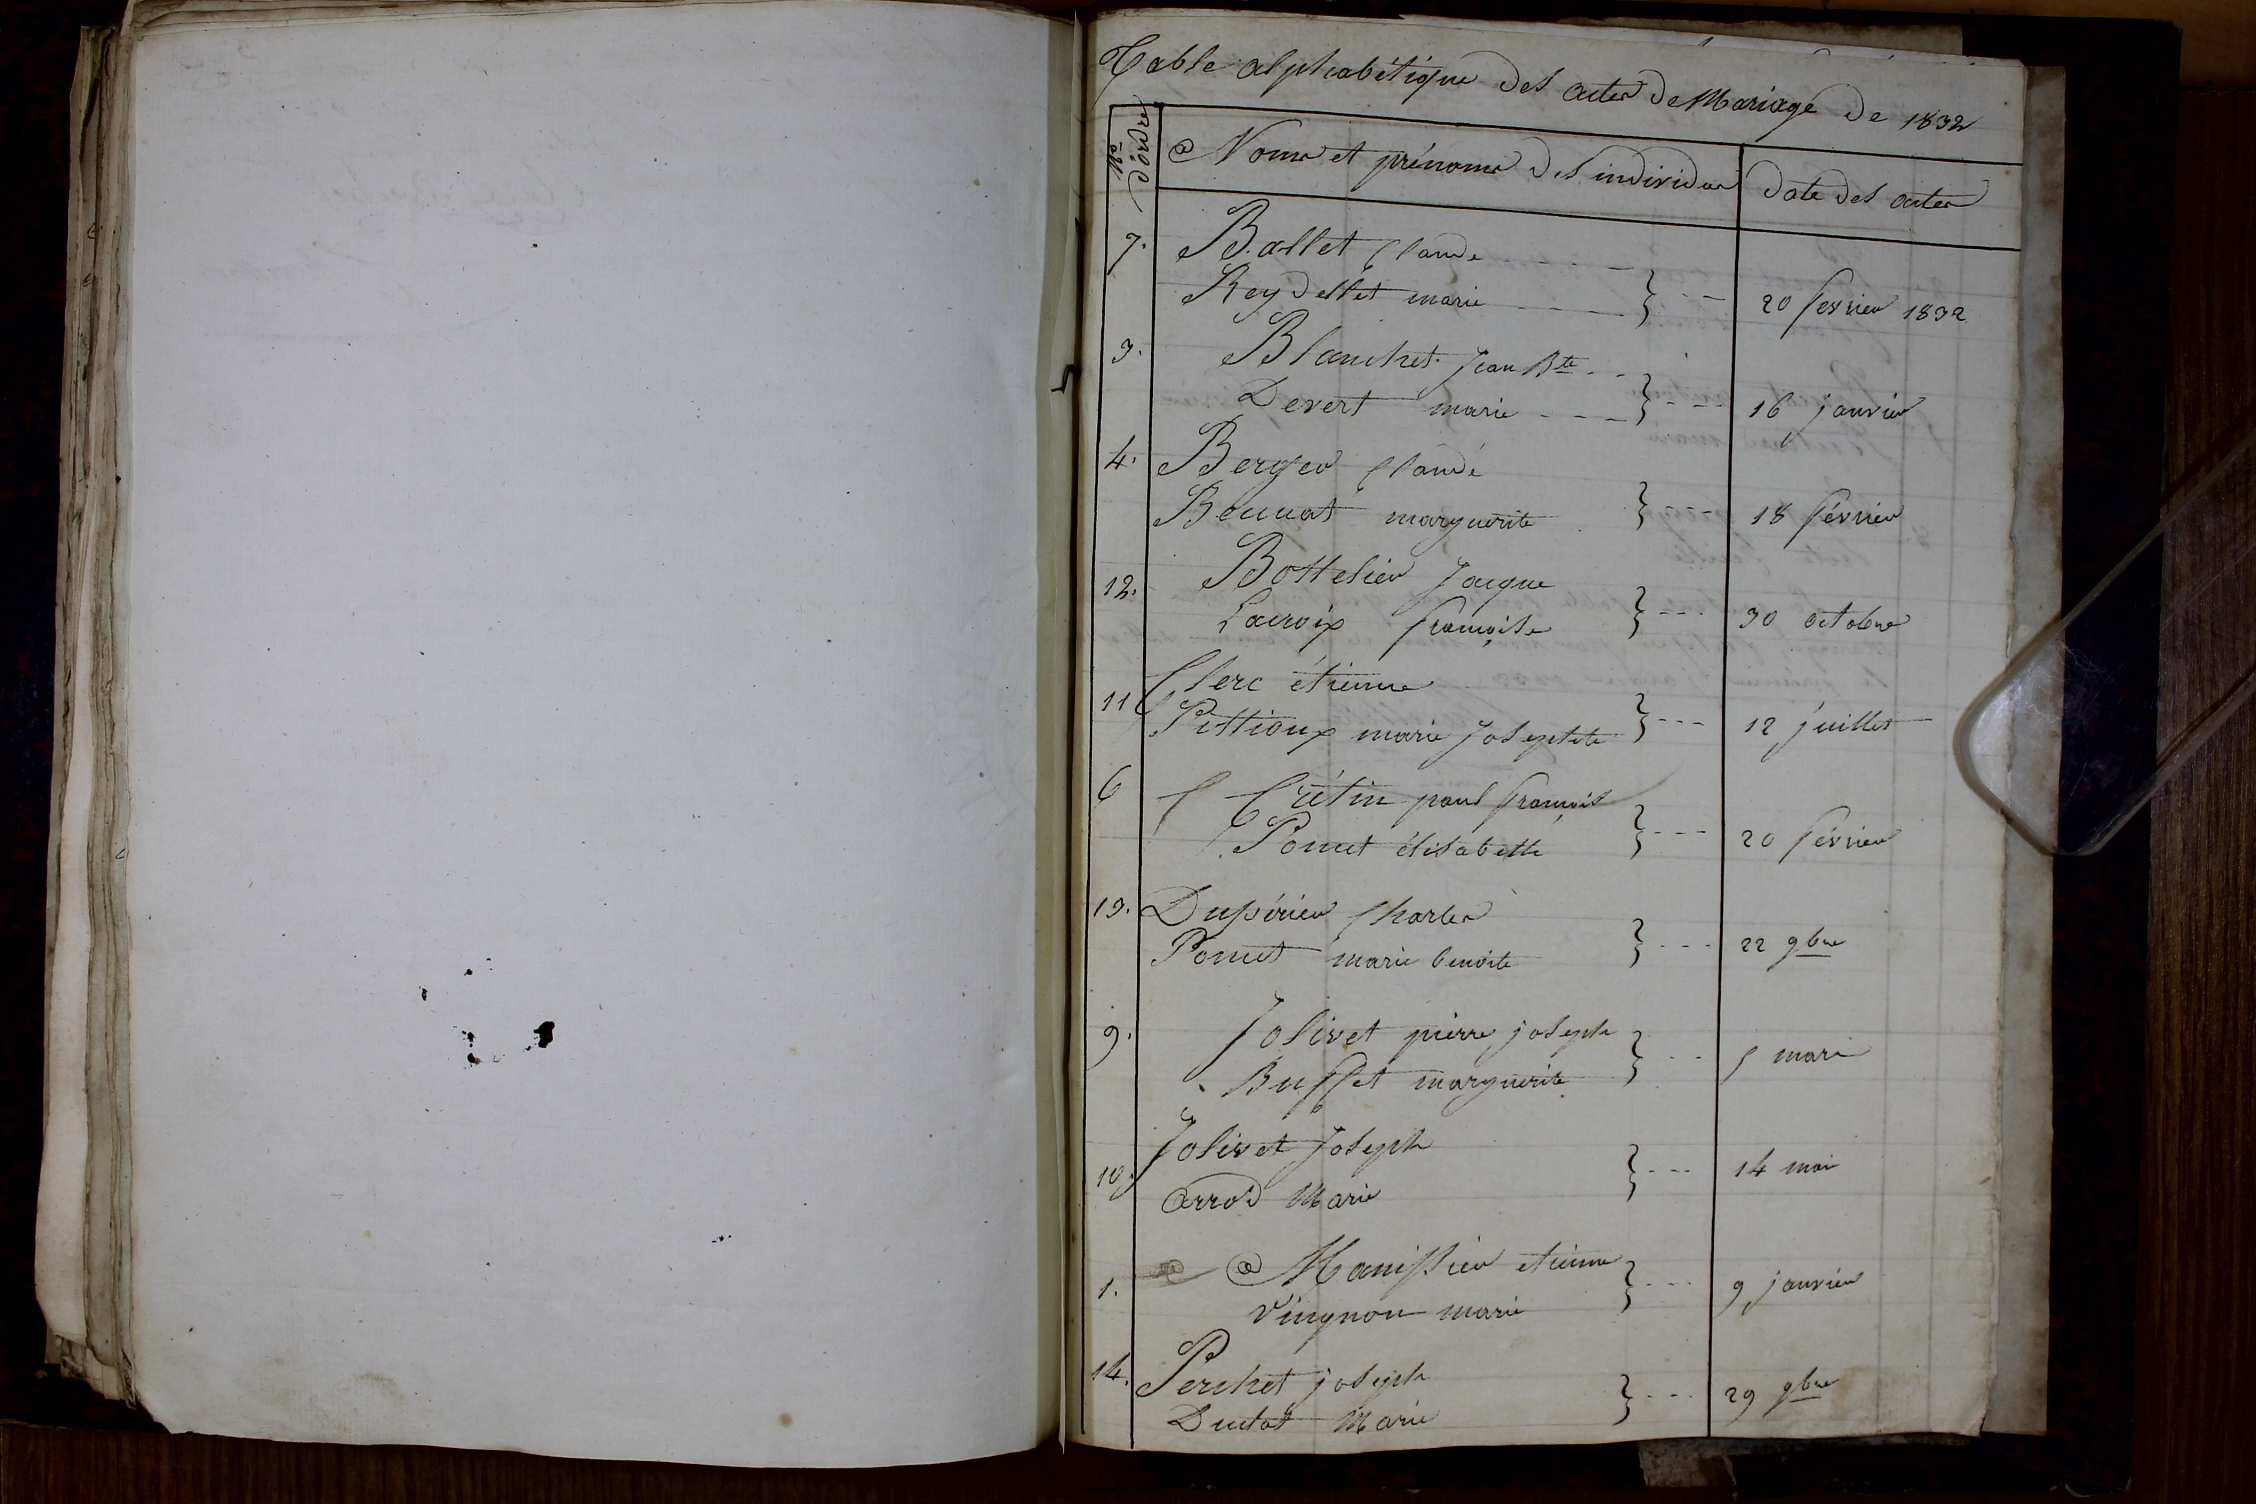 Table alphabétique des actes de Mariage de 1832
No D'ordre
Noms et prénoms des individus
date des actes
7. Ballet Claude
Reydellet marie 20 fevrier 1832
3. Blanchet Jean Bte
Devert marie 16 janvier
4. Berger Claude
marguerite 18 février
12. Bottelier Jacque
Lacroix françoise 30 octobre
11 Clerc étienne
Pittioux marie Josephte 12 juillet
6 Crétin paul françois
Poncet élisabeth 20 février
13. Dupérier Charles
Poncet marie benoite 22 9bre
9. Jolivet pierre joseph
Buffet marguerite 5 mars
10. Jolivet Joseph
Arrod Marie 14 mai
1. Manissier etienne
Vingnon marie 9 janvier
14. Perchet joseph
Marie 29 9bre